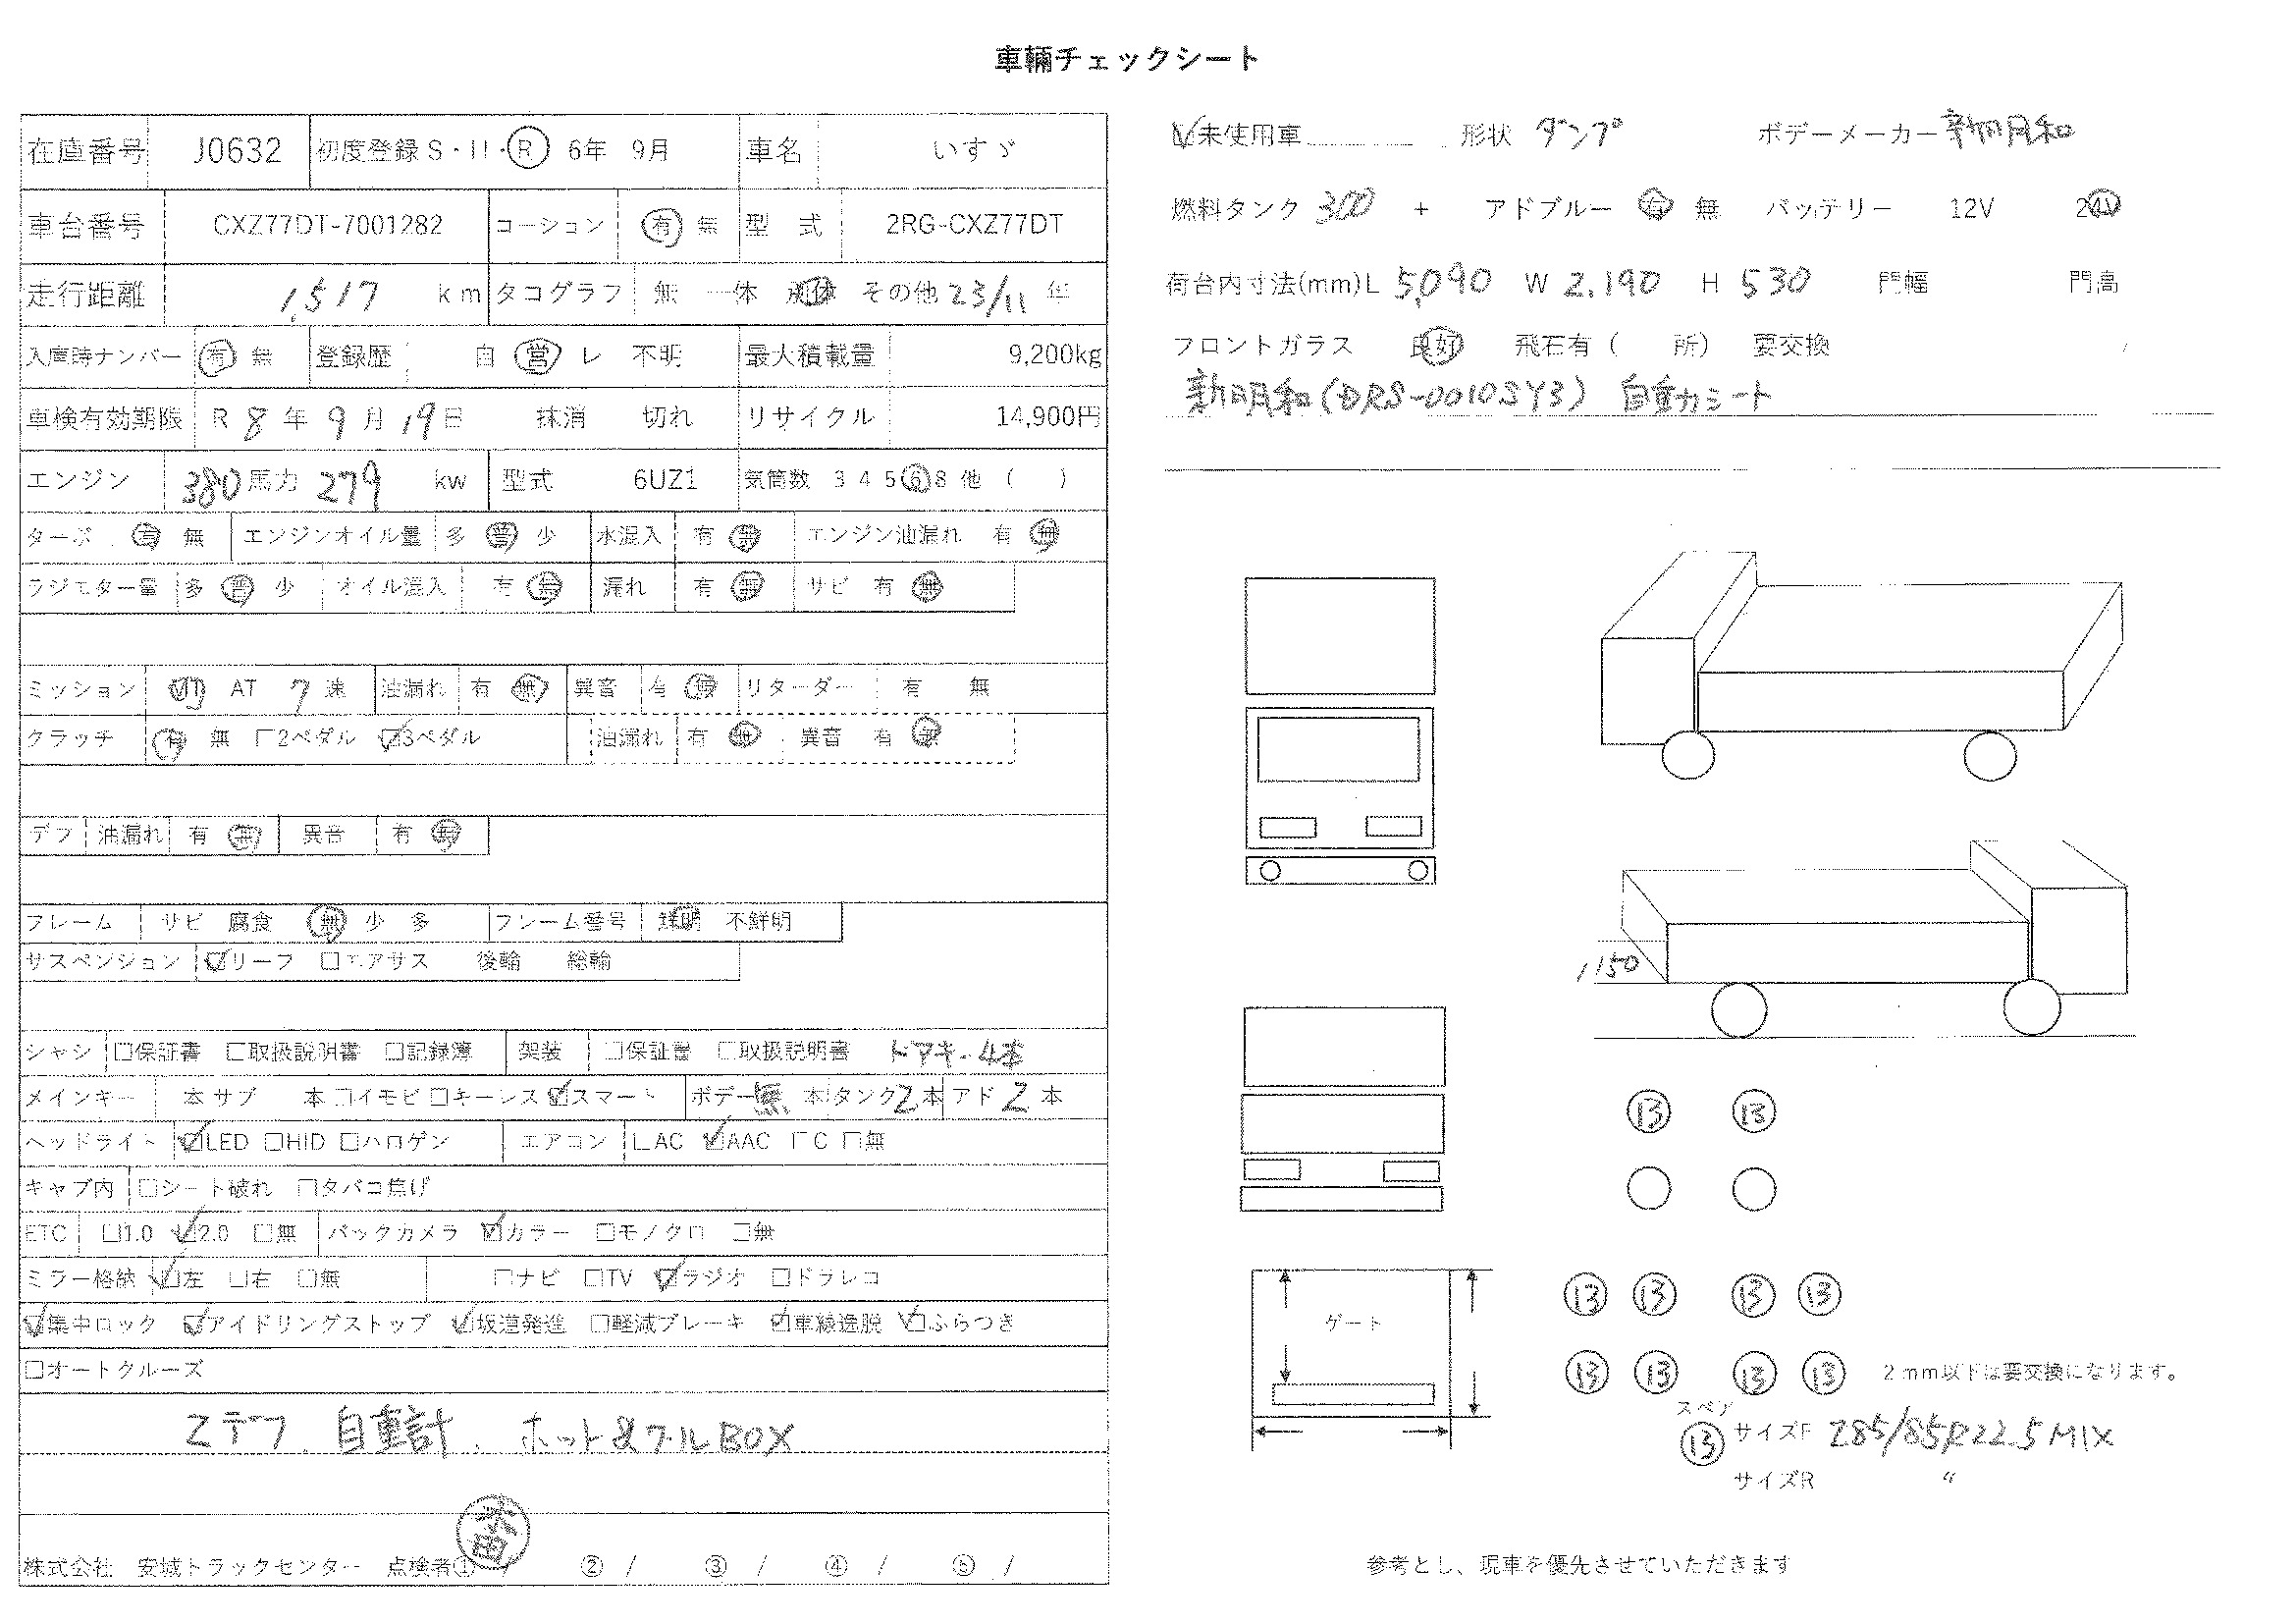 車輛チェックシート
在庫番号 J0632 初度登録 S・H・R 6年 9月 車名 いすゞ
車台番号 CXZ77DT-7001282 コーション 有 無 型 式 2RG-CXZ77DT
走行距離 1,517 km タコグラフ 無 一体 別体 その他 23/11 年
入庫時ナンバー 有 無 登録歴 自 営 レ 不明 最大積載量 9,200kg
車検有効期限 R 8 年 9 月 19 日 抹消 切れ リサイクル 14,900円
エンジン 380 馬力 279 kw 型式 6UZ1 気筒数 3 4 5 6 8 他 ( )
ターボ 有 無 エンジンオイル量 多 普 少 水混入 有 無 エンジン油漏れ 有 無
ラジエター量 多 普 少 オイル混入 有 無 漏れ 有 無 サビ 有 無
ミッション MT AT 7 速 油漏れ 有 無 異音 有 無 リターダー 有 無
クラッチ 有 無 □2ペダル ☑3ペダル 油漏れ 有 無 異音 有 無
デフ 油漏れ 有 無 異音 有 無
フレーム サビ 腐食 無 少 多 フレーム番号 鮮明 不鮮明
サスペンション ☑リーフ □エアサス 後輪 総輪
シャシ □保証書 □取扱説明書 □記録簿 架装 □保証書 □取扱説明書 ドアキー4本
メインキー 本 サブ 本 □イモビ □キーレス ☑スマート ボデー 無 本 タンク 2 本 アド 2 本
ヘッドライト ☑LED □HID □ハロゲン エアコン □AC ☑AAC □C □無
キャブ内 □シート破れ □タバコ焦げ
ETC □1.0 ☑2.0 □無 バックカメラ ☑カラー □モノクロ □無
ミラー格納 ☑左 □右 □無 □ナビ □TV ☑ラジオ □ドラレコ
☑集中ロック ☑アイドリングストップ ☑坂道発進 □軽減ブレーキ ☑車線逸脱 ☑ふらつき
□オートクルーズ
2デフ、自重計、ホット&クールBOX
株式会社 安城トラックセンター 点検者① / ② / ③ / ④ / ⑤ /
☑未使用車 形状 ダンプ ボデーメーカー 新明和
燃料タンク 300 + アドブルー 有 無 バッテリー 12V 24V
荷台内寸法(mm) L 5,090 W 2,190 H 530 門幅 門高
フロントガラス 良好 飛石有 ( 所) 要交換
新明和(DRS-0010SY3) 自動カシート
1150
⑬ ⑬
ゲート
⑬ ⑬ ⑬ ⑬
⑬ ⑬ ⑬ ⑬ 2mm以下は要交換になります。
スペア
⑬ サイズF 285/85R22.5 MIX
サイズR 〃
参考とし、現車を優先させていただきます